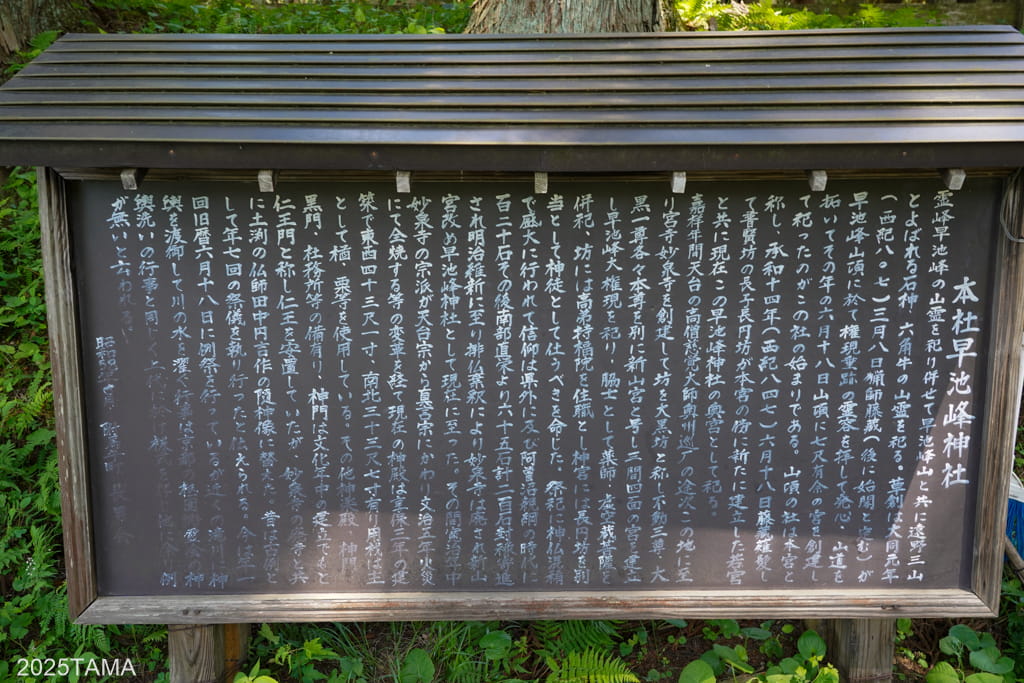 本社早池峰神社
霊峰早池峰の山霊を祀り併せて早池峰山と共に遠野三山
とよばれる石神 六角牛の山霊を祀る。草創は大同元年
(西紀八〇七)三月八日猟師藤蔵(後に始閣と進む)が
早池峰山頂に於て権現垂跡の霊容を拝して発心 山道を
拓いてその年の六月十八日山頂に七尺有余の宮を創建し
て祀ったのがこの社の始まりである。山頂の社は本宮と
称し、承和十四年(西紀八四七)六月十八日藤蔵確髪し
て普賢坊の長子長円坊が本宮の傍に新たに建立した若宮
と共に現在この早池峰神社の奥宮として祀る。
嘉祥年間天台の高僧慈覚大師奥州巡㋐の途次この地に至
り宮寺妙泉寺を創建して坊を大黒坊と称し不動三尊、大
黒一尊各々本尊を別に新山宮と号し三間四面の宮を建立
し早池峰大権現を祀り、脇士として薬師、虚空蔵菩薩を
併祀、坊には高弟持福院を住職とし神宮に長円坊を別
当として神徒として仕うべきを命じた。祭祀は神仏混淆
で盛大に行われて信仰は県外に及び阿曽沼親綱の時代に
百二十石その後南部直栄より六十五石計二百石封禄寄進
され明治維新に至り排仏棄釈により妙泉寺は廃され新山
宮改め早池峰神社として現社に至った。その間宝治年中
妙泉寺の宗派が天台宗から真言宗にかわり、文治五年火災
にて全焼する等の変革を経て現在の神殿は 三年の建
築で東西四十三尺一寸、南北三十三尺七寸有り用材は主
として楢、栗等を使用している。その他神楽殿、神門
黒門、社務所等の備有り、神門は文化年中の建立でもと
仁王門と称し仁王を安置していたが、妙泉寺の廃寺と共
に土渕の仏師田中円吉作の随神像に替えた。昔は古例と
して年七回の祭儀を執り行ったと伝えられる。今は年一
回旧暦六月十八日に例祭を行っているが近くの 川に神
輿を渡御して川の水に濯ぐ行事は京都の 祇園 祭の神
輿洗いの行事と同じく
が無いと云われる
昭和